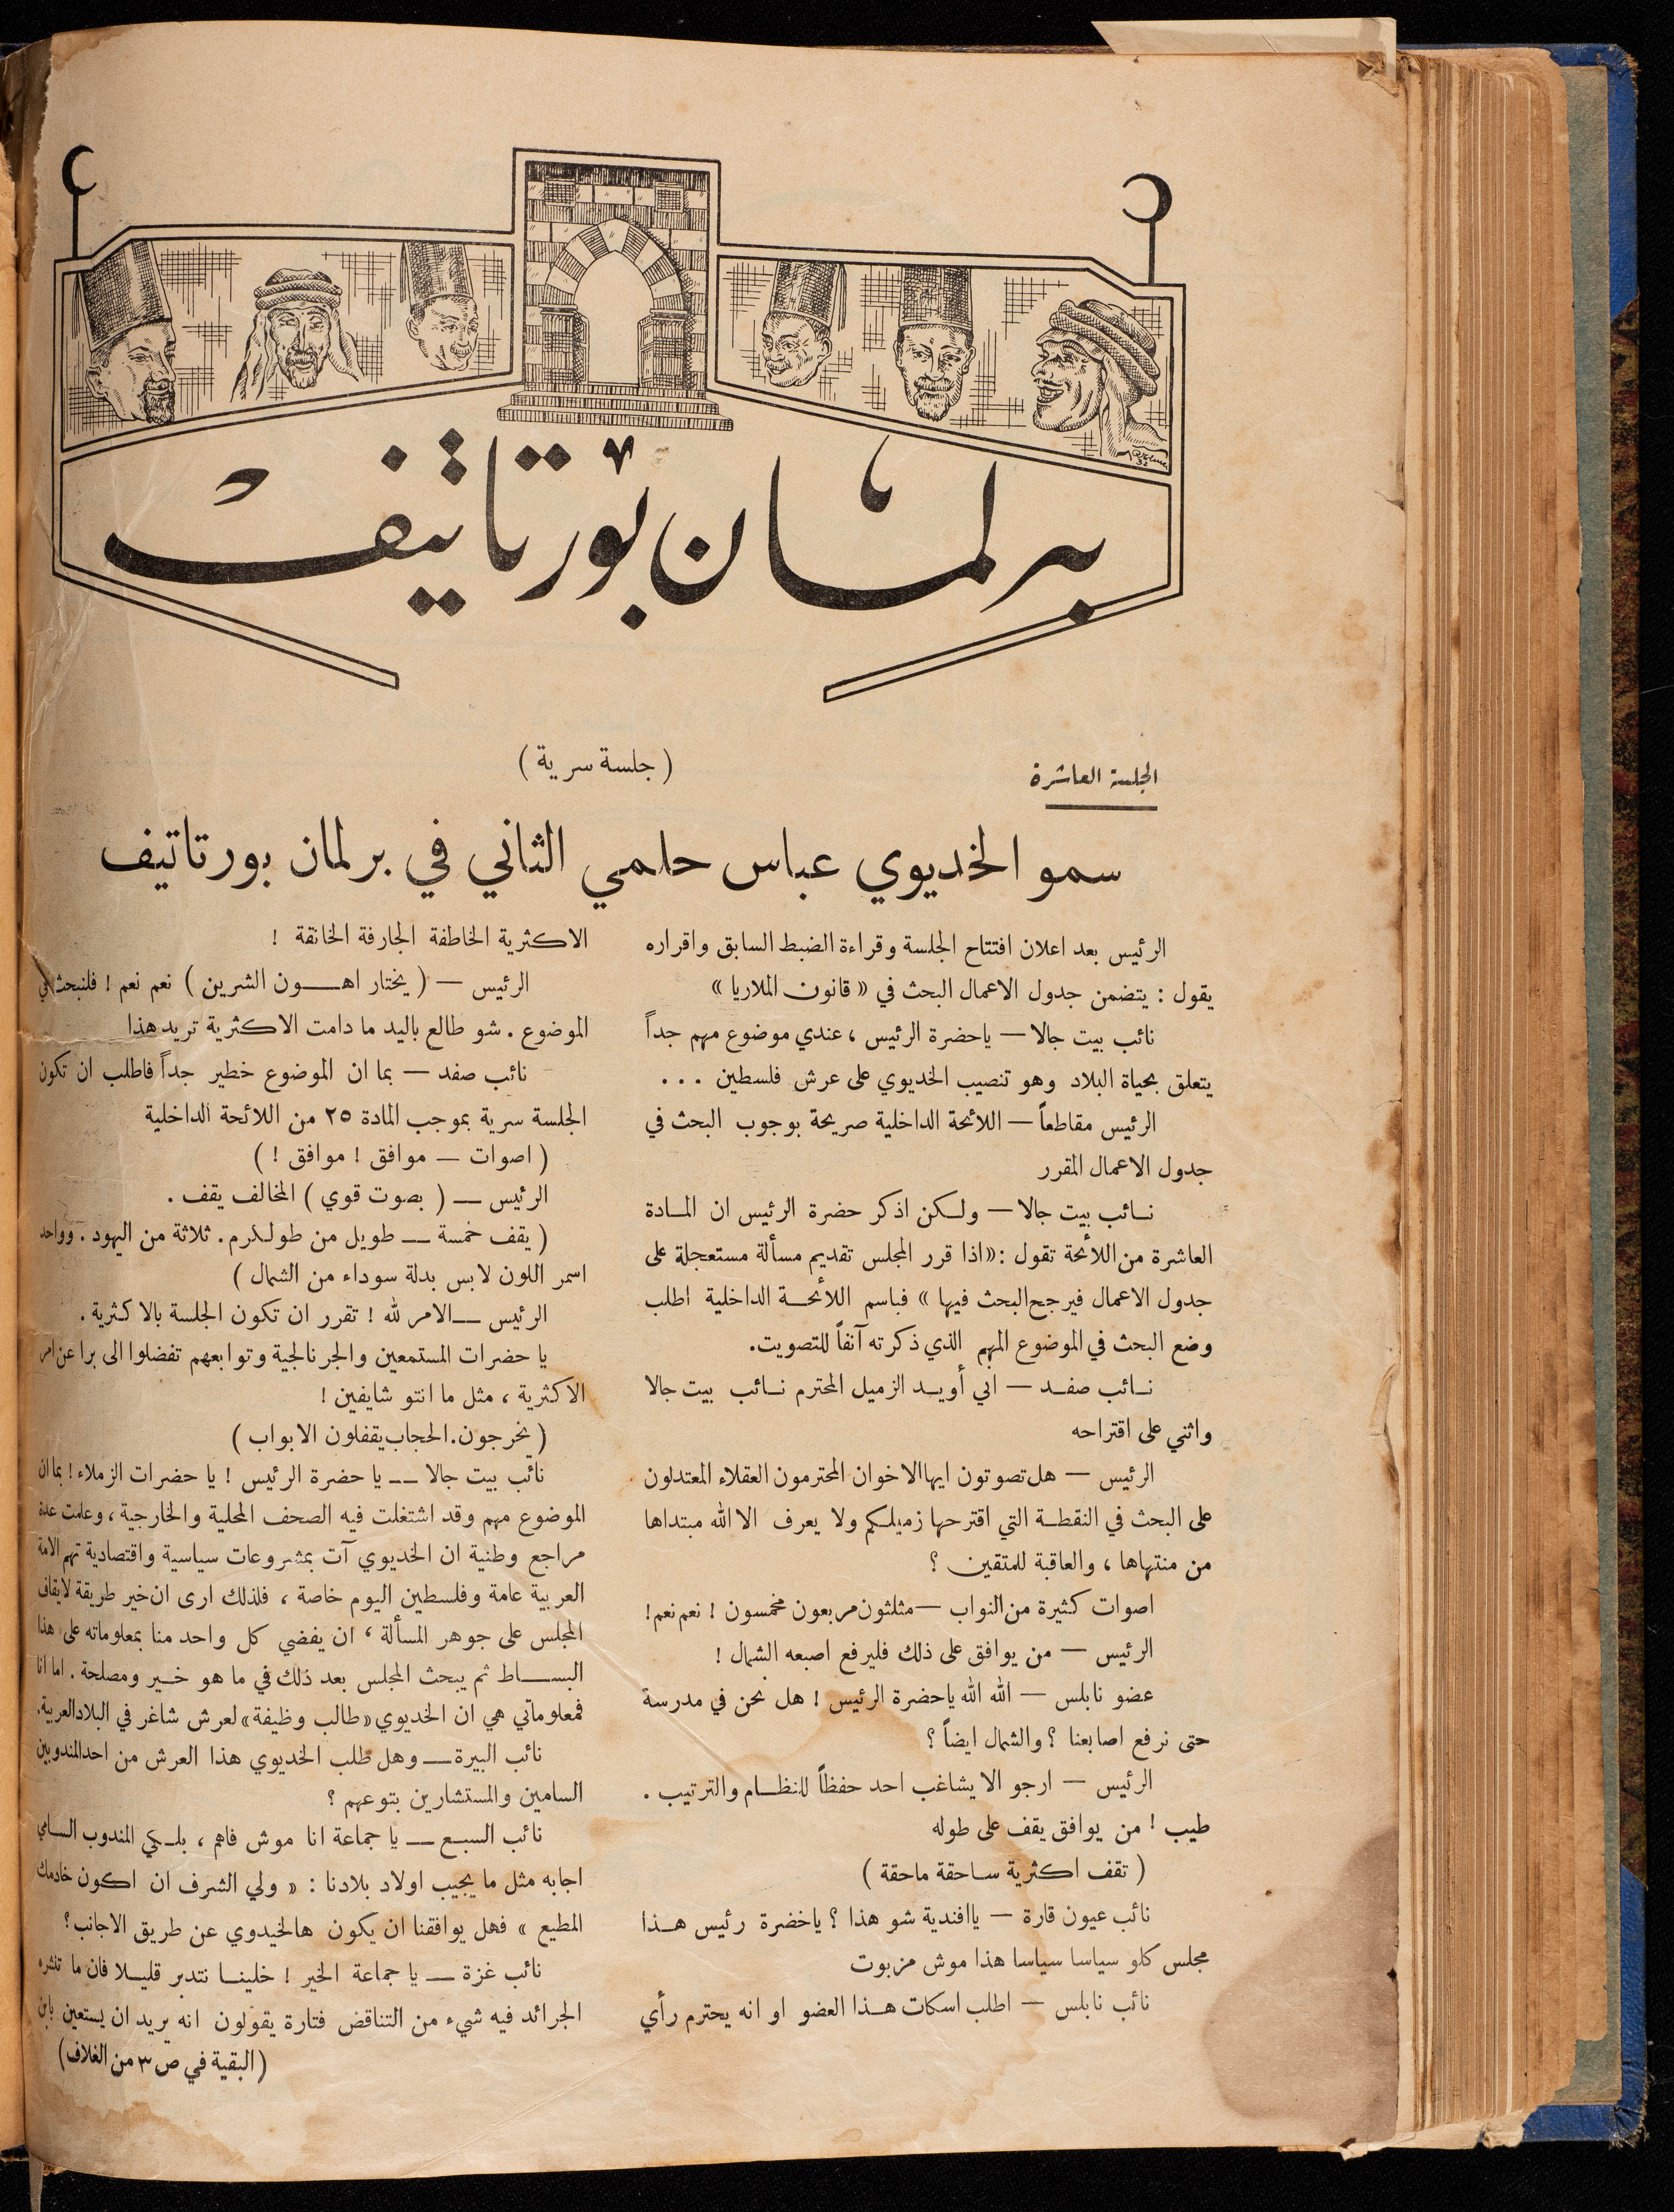 برلمان بورتاتيف
الجلسة العاشرة
( جلسة سرية )
سمو الخديوي عباس حلمي الثاني في برلمان بورتاتيف
الرئيس بعد اعلان افتتاح الجلسة وقراءة الضبط السابق واقراره
يقول : يتضمن جدول الاعمال البحث في « قانون الملاريا »
نائب بيت جالا — ياحضرة الرئيس ، عندي موضوع مهم جداً
يتعلق بحياة البلاد وهو تنصيب الخديوي على عرش فلسطين ...
الرئيس مقاطعاً — اللائحة الداخلية صريحة بوجوب البحث في
جدول الاعمال المقرر
نائب بيت جالا — ولكن اذكر حضرة الرئيس ان المادة
العاشرة من اللائحة تقول : « اذا قرر المجلس تقديم مسألة مستعجلة على
جدول الاعمال فيرجح البحث فيها » فباسم اللائحة الداخلية اطلب
وضع البحث في الموضوع المهم الذي ذكرته آنفاً للتصويت.
نائب صفد — اني أويد الزميل المحترم نائب بيت جالا
واثني على اقتراحه
الرئيس — هل تصوتون ايها الاخوان المحترمون العقلاء المعتدلون
على البحث في النقطة التي اقترحها زميلكم ولا يعرف الا الله مبتداها
من منتهاها ، والعاقبة للمتقين ؟
اصوات كثيرة من النواب — مثلثون مربعون مخمسون ! نعم نعم !
الرئيس — من يوافق على ذلك فليرفع اصبعه الشمال !
عضو نابلس — الله الله ياحضرة الرئيس ! هل نحن في مدرسة
حتى نرفع اصابعنا ؟ والشمال ايضاً ؟
الرئيس — ارجو الا يشاغب احد حفظاً للنظام والترتيب .
طيب ! من يوافق يقف على طوله
( تقف اكثرية ساحقة ماحقة )
نائب عيون قارة — ياافندية شو هذا ؟ ياخضرة رئيس هذا
مجلس كلو سياسا سياسا هذا موش مزبوت
نائب نابلس — اطلب اسكات هذا العضو او انه يحترم رأي
الاكثرية الخاطفة الجارفة الخانقة !
الرئيس — ( يختار اهون الشرين ) نعم نعم ! فلنبحث في
الموضوع . شو طالع باليد ما دامت الاكثرية تريد هذا
نائب صفد — بما ان الموضوع خطير جداً فاطلب ان تكون
الجلسة سرية بموجب المادة ٢٥ من اللائحة الداخلية
( اصوات — موافق ! موافق ! )
الرئيس — ( بصوت قوي ) المخالف يقف .
( يقف خمسة — طويل من طولكرم . ثلاثة من اليهود . وواحد
اسمر اللون لابس بدلة سوداء من الشمال )
الرئيس — الامر لله ! تقرر ان تكون الجلسة بالاكثرية .
يا حضرات المستمعين والجرنالجية وتوابعهم تفضلوا الى برا عن امر
الاكثرية ، مثل ما انتو شايفين !
( يخرجون . الحجاب يقفلون الابواب )
نائب بيت جالا — يا حضرة الرئيس ! يا حضرات الزملاء ! بما ان
الموضوع مهم وقد اشتغلت فيه الصحف المحلية والخارجية ، وعلمت عدة
مراجع وطنية ان الخديوي آت بمشروعات سياسية واقتصادية تهم الامة
العربية عامة وفلسطين اليوم خاصة ، فلذلك ارى ان خير طريقة لايقاف
المجلس على جوهر المسألة ، ان يفضي كل واحد منا بمعلوماته على هذا
البساط ثم يبحث المجلس بعد ذلك في ما هو خير ومصلحة . اما انا
فمعلوماتي هي ان الخديوي « طالب وظيفة » لعرش شاغر في البلاد العربية.
نائب البيرة — وهل طلب الخديوي هذا العرش من احد المندوبين
السامين والمستشارين بتوعهم ؟
نائب السبع — يا جماعة انا موش فاهم ، بلكي المندوب السامي
اجابه مثل ما يجيب اولاد بلادنا : « ولي الشرف ان اكون خادمك
المطيع » فهل يوافقنا ان يكون هالخيدوي عن طريق الاجانب ؟
نائب غزة — يا جماعة الخير ! خلينا نتدبر قليلا فان ما تنشره
الجرائد فيه شيء من التناقض فتارة يقولون انه يريد ان يستعين بابن
( البقية في ص ٣ من الغلاف )